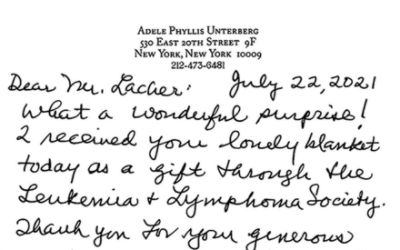 ADELE PHYLLIS UNTERBERG
530 EAST 20TH STREET 9F
NEW YORK, NEW YORK 10009
212-473-6481
Dear Mr. Lacher: July 22, 2021
What a wonderful surprise!
I received your lovely blanket
today as a gift through the
Leukemia & Lymphoma Society.
Thank you for your generous